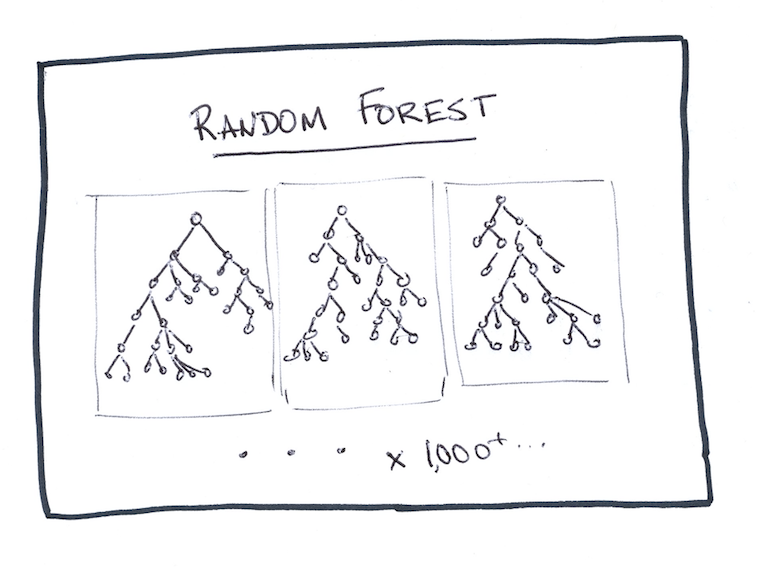 RANDOM FOREST
. . . x 1,000+...